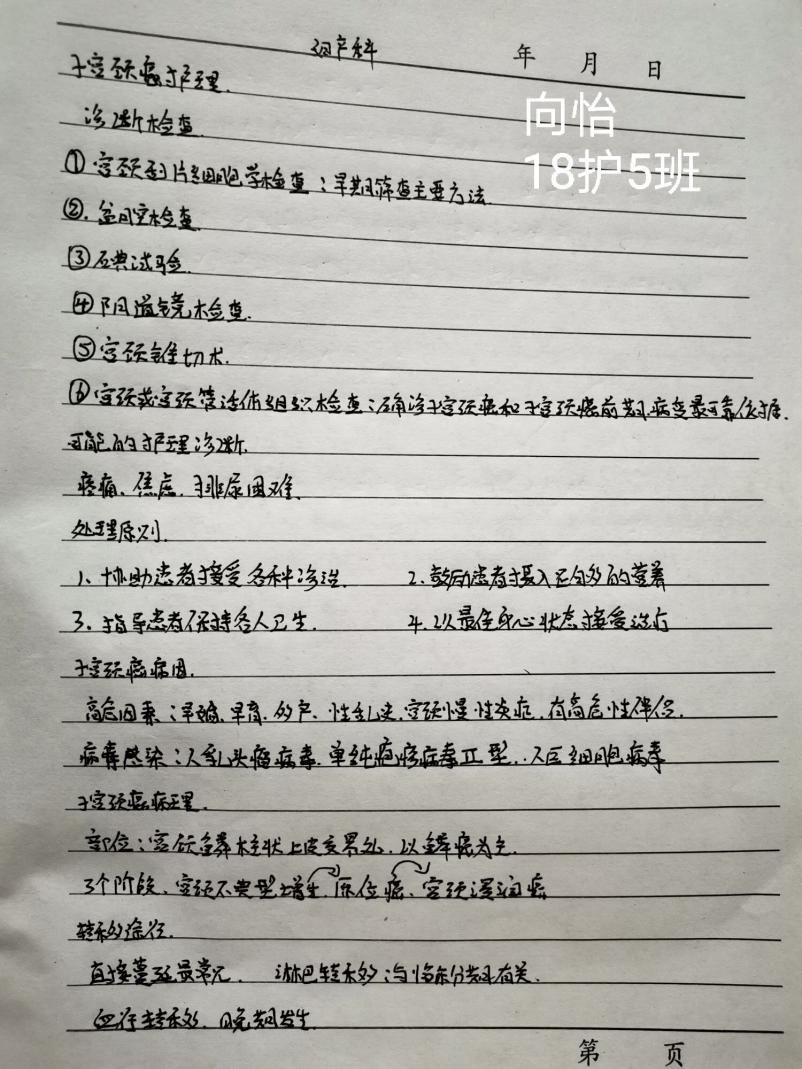 妇产科
年 月 日
子宫颈癌护理.
向怡
18护5班
诊断检查
①宫颈刮片细胞学检查：早期筛查主要方法.
②.盆腔检查
③碘试验.
④阴道镜检查.
⑤宫颈锥切术.
⑥宫颈或宫颈管活体组织检查：确诊子宫颈癌和子宫颈癌前期病变最可靠依据.
可能的护理诊断.
疼痛、焦虑、排尿困难.
处理原则.
1、协助患者接受各种诊治. 2.鼓励患者摄入足够的营养
3、指导患者保持个人卫生. 4.以最佳身心状态接受治疗
子宫颈癌病因.
高危因素：早婚、早育、多产、性乱史、宫颈慢性炎症、有高危性伴侣.
病毒感染：人乳头瘤病毒、单纯疱疹病毒Ⅱ型、人巨细胞病毒
子宫颈癌病理.
部位：宫颈鳞柱状上皮交界处，以鳞癌为主.
3个阶段、宫颈不典型增生、原位癌、宫颈浸润癌
转移途径.
直接蔓延最常见. 淋巴转移：与临床分期有关.
血行转移、晚期发生.
第 页